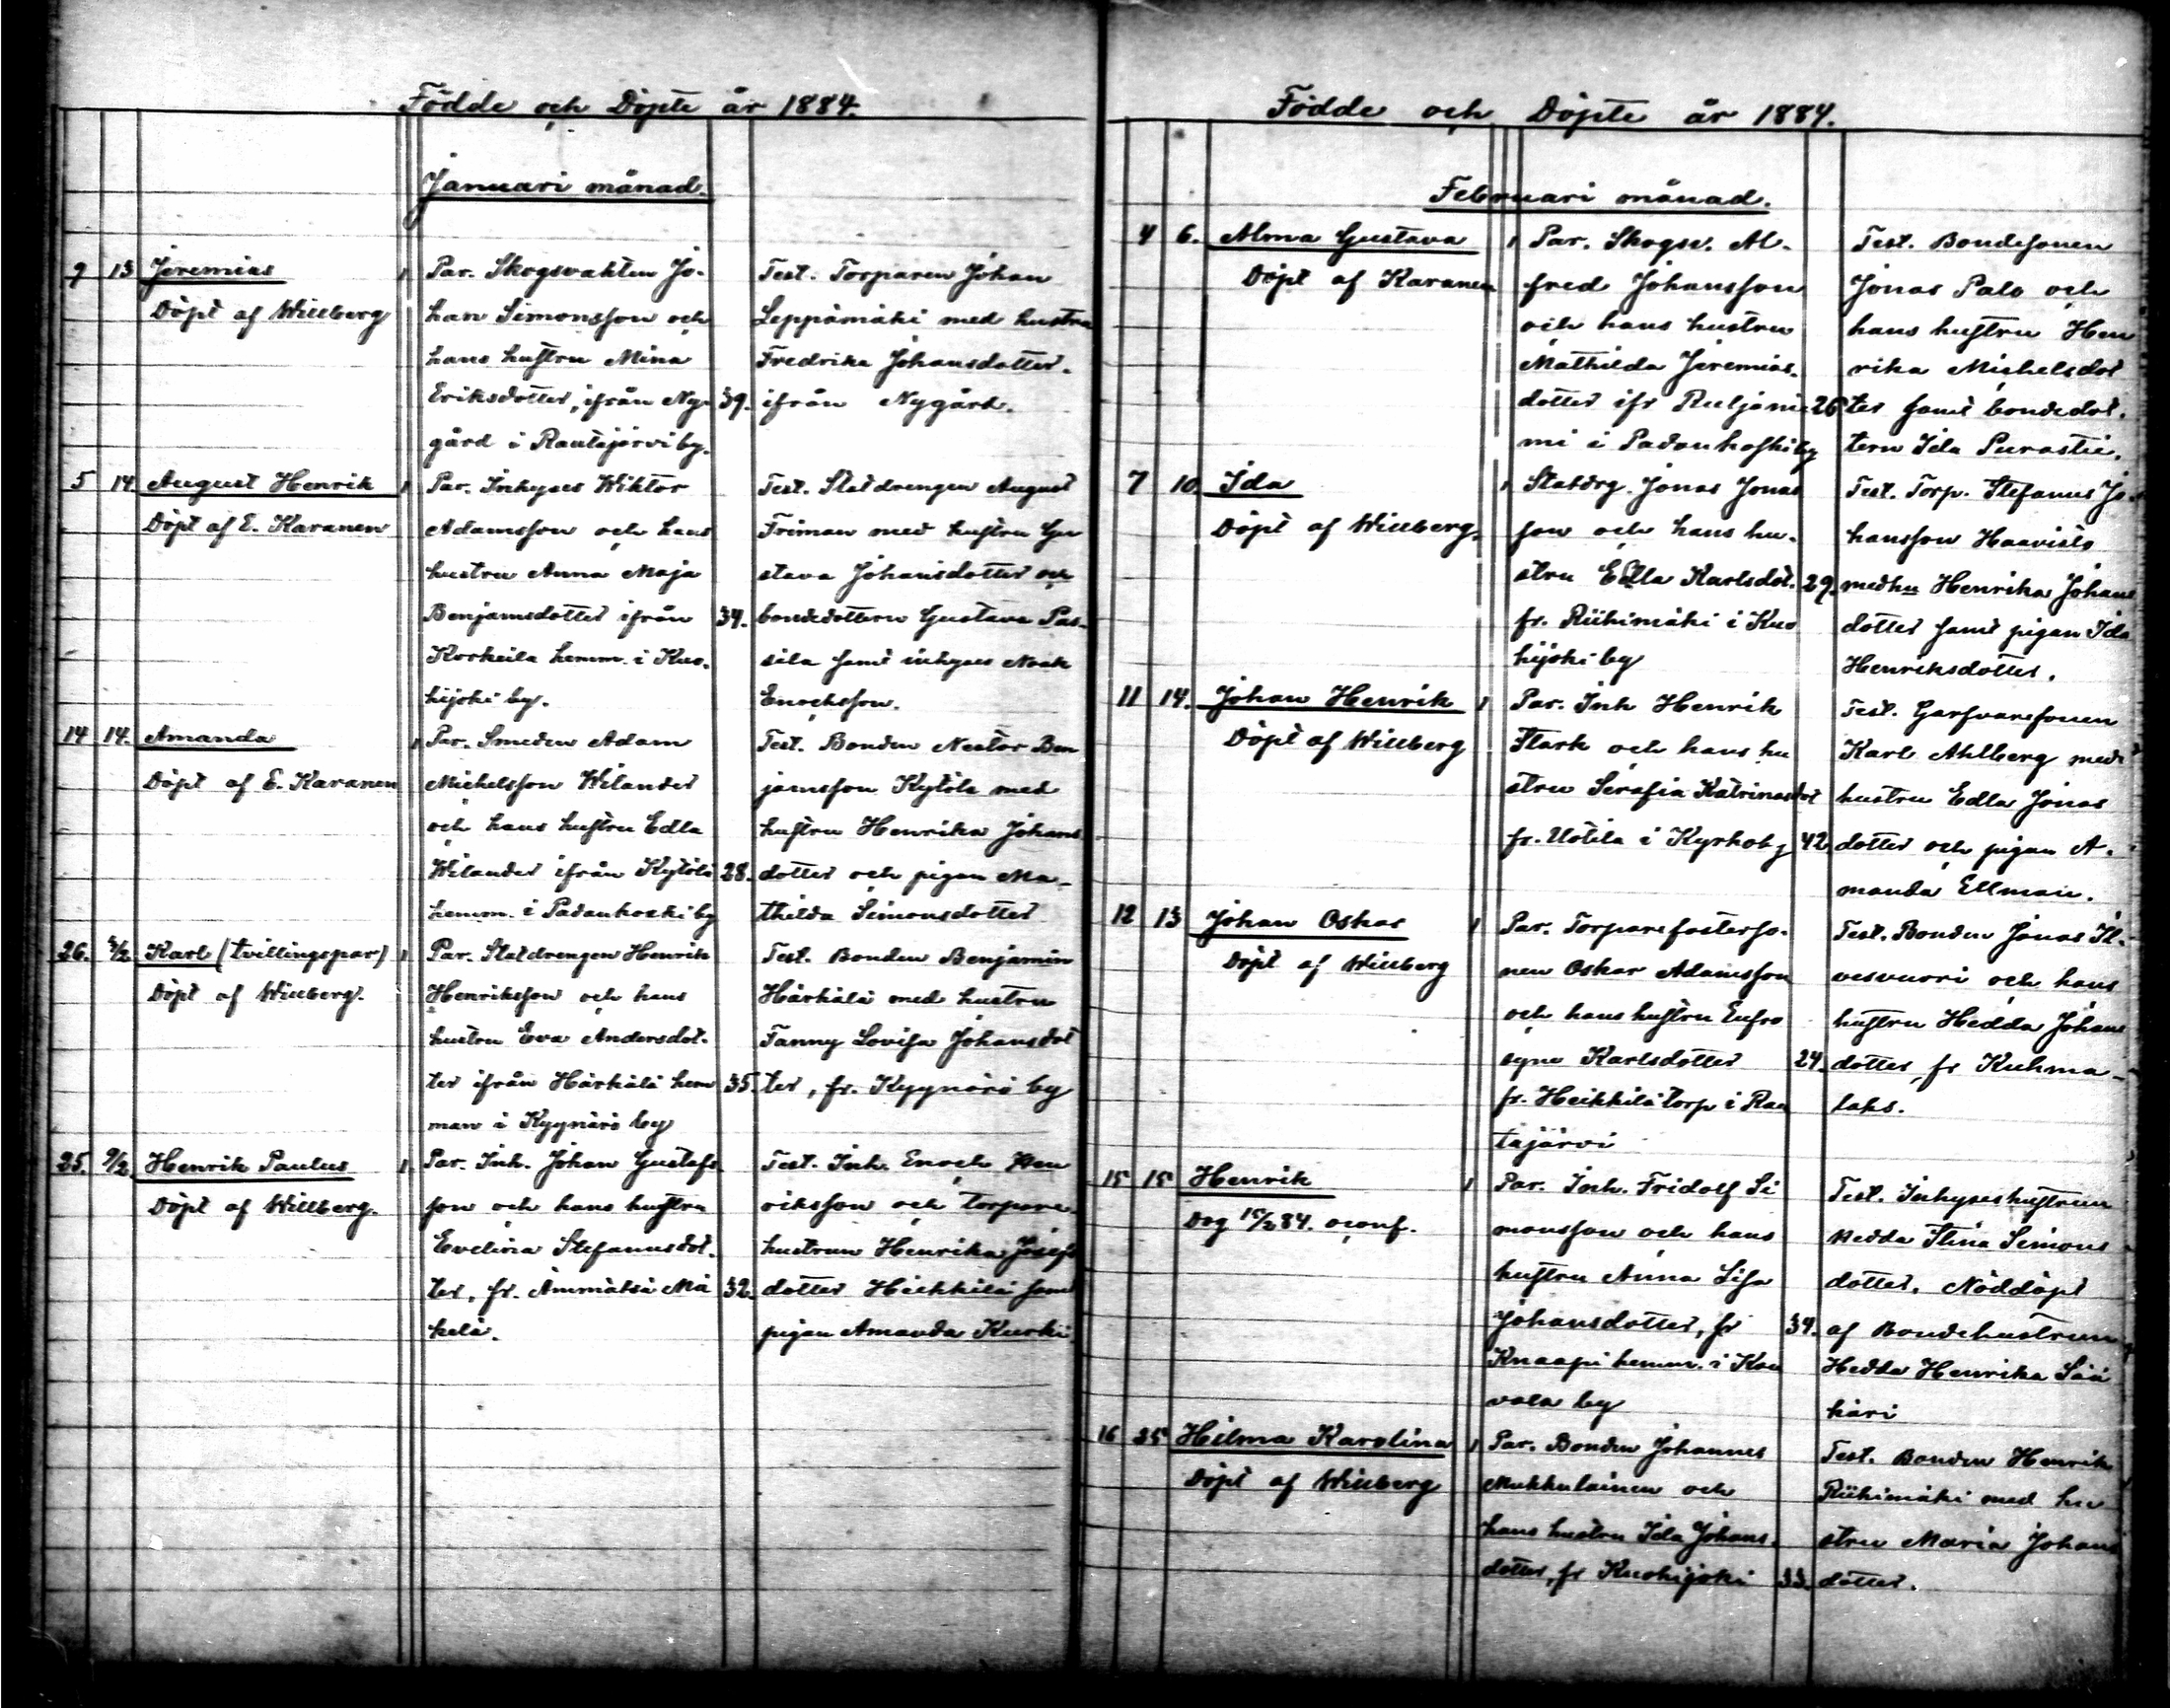 Födde och Döpte år 1884.
Januari månad.
9 13 Jeremias
Döpt af Willberg
1 Par. Skogsvakten Jo-
han Simonsson och
hans hustru Mina
Eriksdotter, ifrån Ny-
gård i Rautajärvi by.
39.
Test. Torparen Johan
Leppämäki med hustru
Fredrika Johansdotter.
ifrån Nygård.
5 14. August Henrik
Döpt af E. Karanen
1 Par. Inhyses Wiktor
Adamsson och hans
hustru Anna Maja
Benjamsdotter ifrån
Korkeila hemm. i Kuo-
hijoki by.
34.
Test. Statdrengen August
Friman med hustru Gu
stava Johansdotter och
bondedottern Gustava Pas-
sila samt inhyses Noak
Enochsson.
14 14. Amanda
Döpt af E. Karanen
1 Par. Smeden Adam
Michelsson Wilander
och hans hustru Edla
Wilander ifrån Kytölä
hemm. i Padankoski by
28.
Test. Bonden Nestor Ben
jamsson Kytölä med
hustru Henrika Johans
dotter och pigan Ma-
thilda Simonsdotter
26. 3/2 Karl (tvillingspar)
Döpt af Willberg.
1 Par. Statdrengen Henrik
Henriksson och hans
hustru Eva Andersdot-
ter ifrån Härkälä hem
man i Kyynärö by
35.
Test. Bonden Benjamin
Härkälä med hustru
Fanny Lovisa Johansdot
ter, fr. Kyynärö by
25. 9/2 Henrik Paulus
Döpt af Willberg.
1 Par. Inh. Johan Gustafs
son och hans hustru
Evelina Stefanusdot-
ter, fr. Ämmätsä Mä
kelä.
32.
Test. Inh. Enoch Hen
riksson och torpare-
hustrun Henrika Josefs
dotter Heikkilä samt
pigan Amanda Kurki
Födde och Döpte år 1884.
Februari månad.
4 6. Alma Gustava
Döpt af Karanen
1 Par. Skogsv. Al-
fred Johansson
och hans hustru
Mathilda Jeremias-
dotter ifr
mi i Padankoski by
26
Test. Bondesonen
Jonas Palo och
hans hustru Hen
rika Michelsdot
ter samt bondedot-
tern Ida Purastie.
7 10 Ida
Döpt af Willberg.
1 Statdrg. Jonas Jonas
son och hans hu-
stru Edla Karlsdot.
fr. Riihimäki i Kuo
hijoki by
29.
Test. Torp. Stefanus Jo
hansson Haavisto
med hu Henrika Johans
dotter samt pigan Ida
Henriksdotter.
11 14. Johan Henrik
Döpt af Willberg
1 Par. Inh Henrik
Stark och hans hu
stru Serafia Katrinasdot
fr. Uotila i Kyrkoby
42
Test. Garfvaresonen
Karl Ahlberg med
hustru Edla Jonas
dotter och pigan A-
manda Ellman.
12 13 Johan Oskar
Döpt af Willberg
1 Par. Torparefosterso-
nen Oskar Adamsson
och hans hustru Eufro
syne Karlsdotter
fr. Heikkilä torp i Rau
tajärvi
24.
Test. Bonden Jonas Il-
vesvuori och hans
hustru Hedda Johans
dotter, fr Kuhma-
laks.
15 15 Henrik
Dog 15/2 84. oconf.
1 Par. Inh. Fridolf Si
monsson och hans
hustru Anna Lisa
Johansdotter, fr
Knaapi hemm. i Kou
vala by
34.
Test. Inhyseshustrun
Hedda Stina Simons
dotter. Nöddöpt
af Bondehustrun
Hedda Henrika Sää
häri
16 25 Hilma Karolina
Döpt af Willberg
1 Par. Bonden Johannes
Mukkulainen och
hans hustru Ida Johans-
dotter, fr Kuohijoki
33.
Test. Bonden Henrik
Riihimäki med hu
stru Maria Johans
dotter.